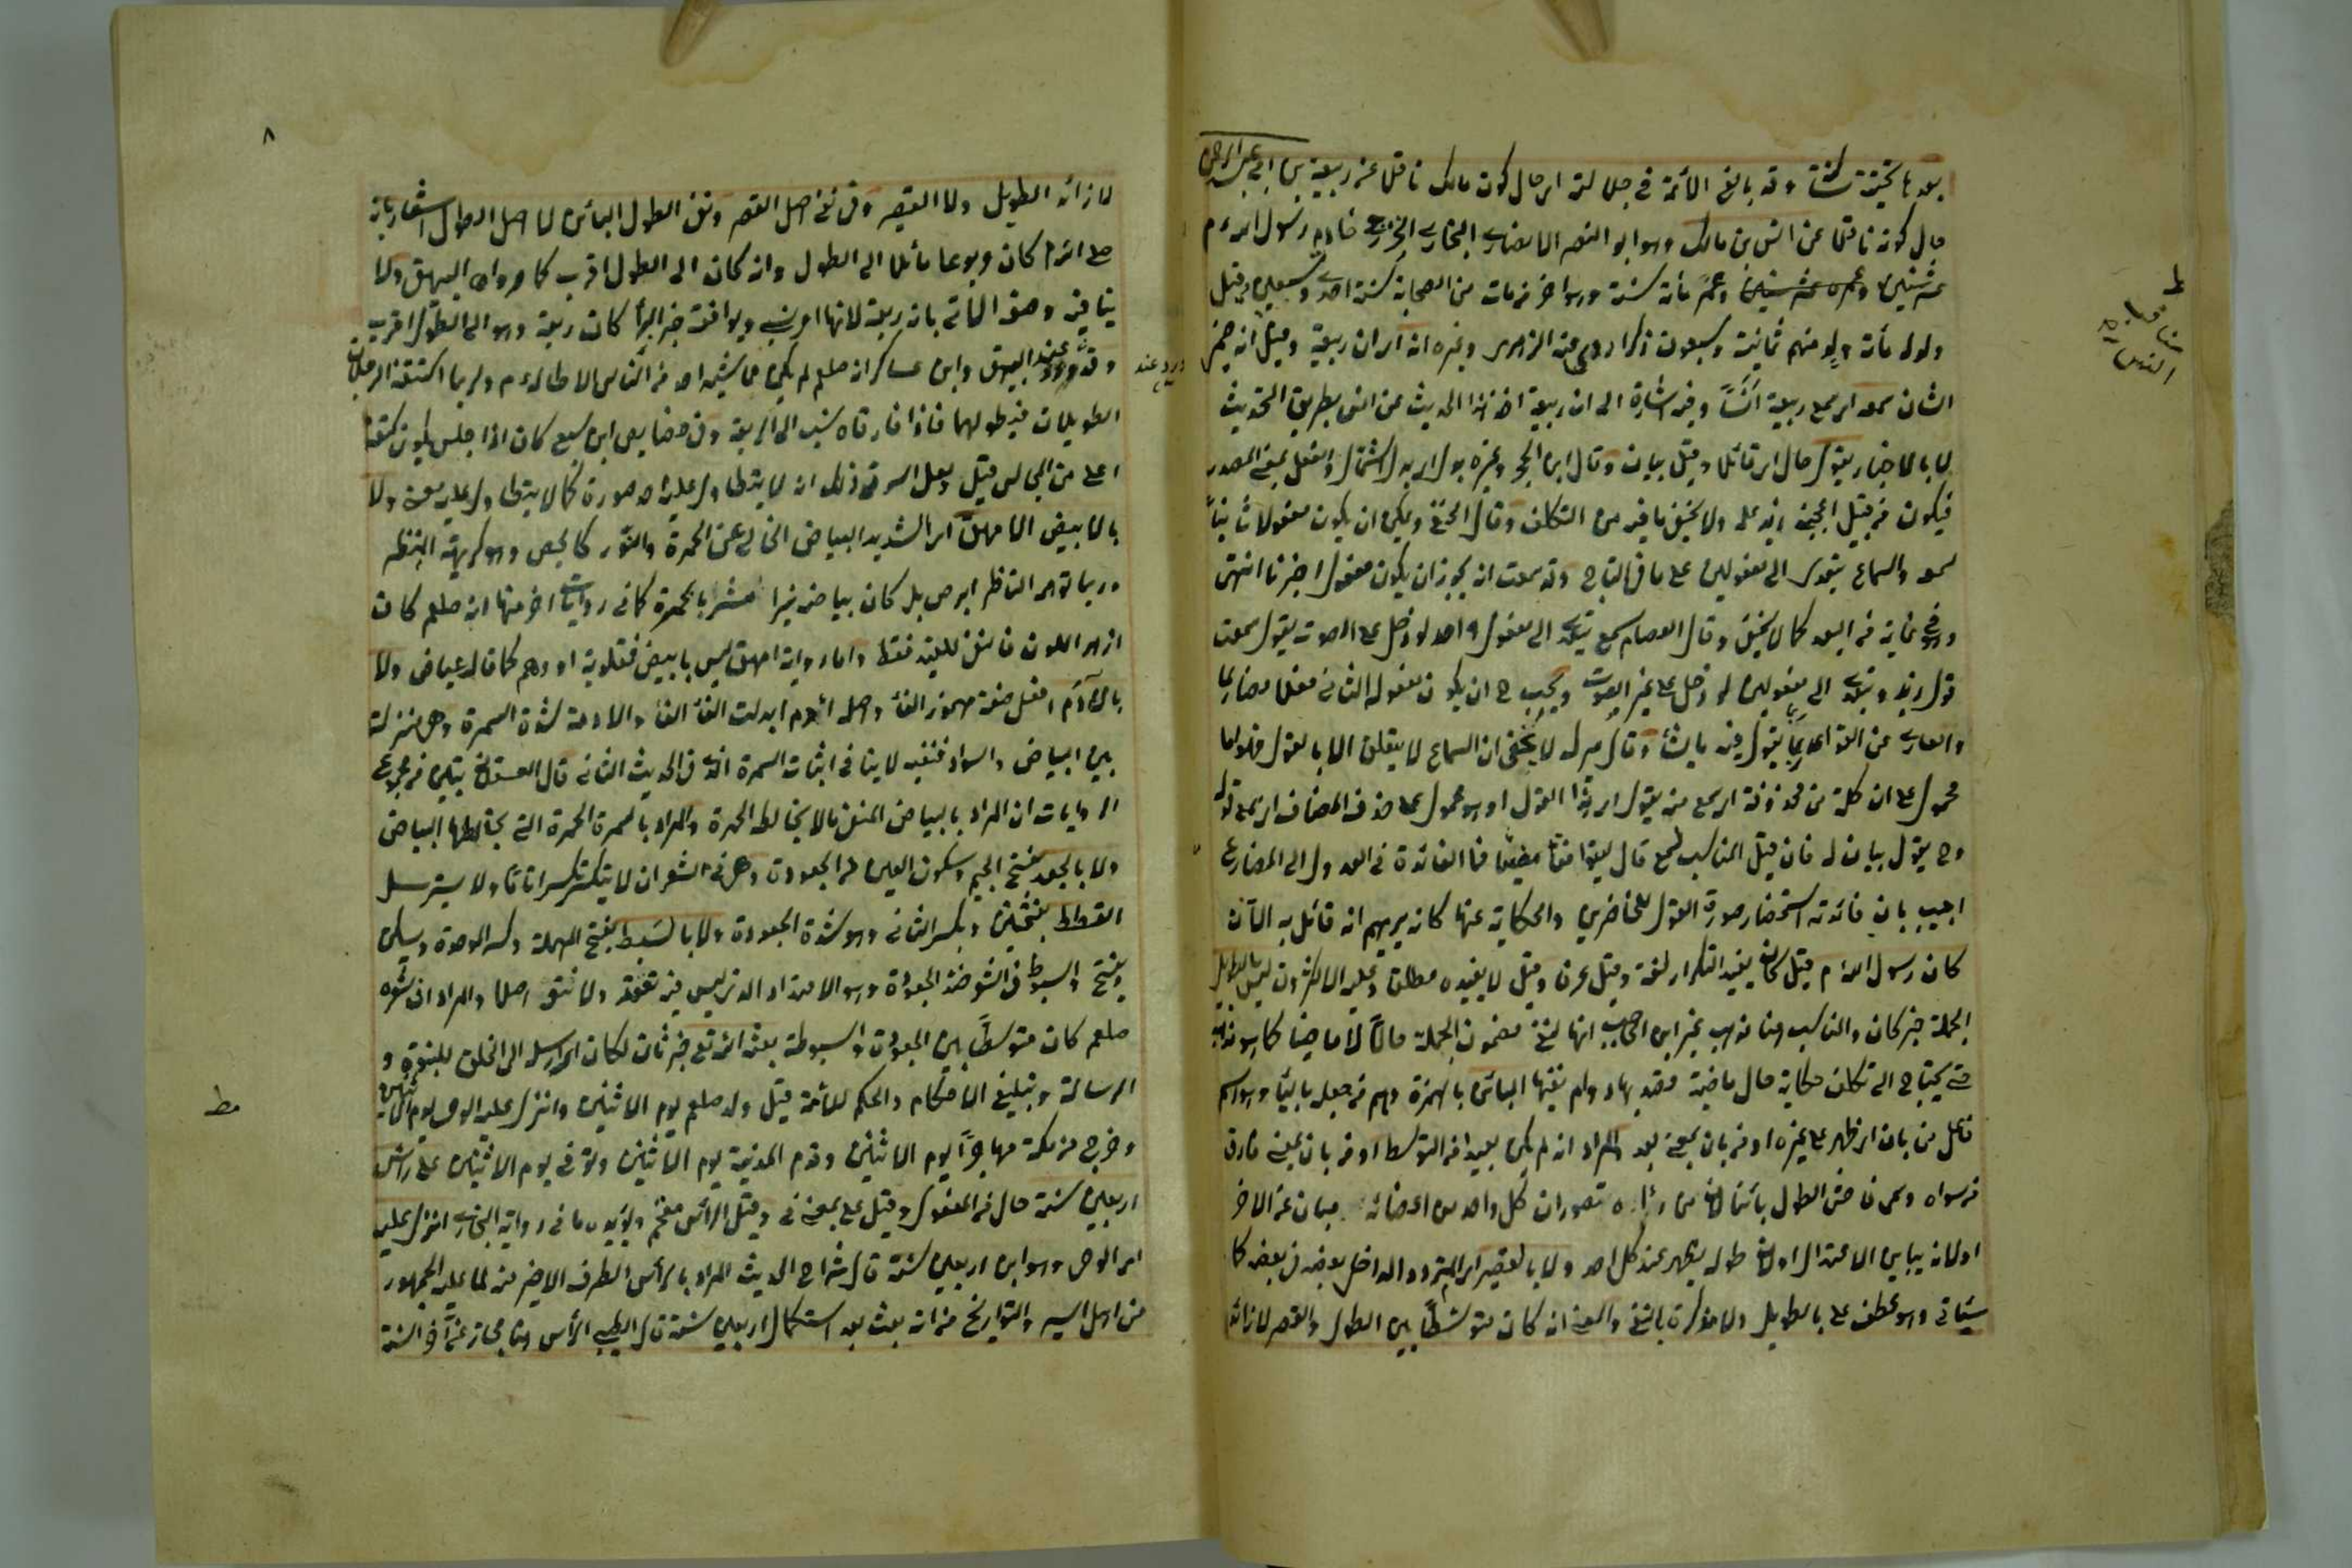 بعدها تحتية ساكنة وقد بالغ الأئمة في جلالته اي حال كون مالك ناقلا عن ربيعة بن ابي عبد الرحمن
حال كونه ناقلا عن انس بن مالك وهو ابو النضر الانصاري البخاري الخزرجي خادم رسول الله م
عشر سنين وعمره عشر سنين وعمّر مأة سنة وهو اخر من مات من الصحابة سنة احدى وتسعين وقيل
وله مأة ولد منهم ثمانية وسبعون ذكرا وغيره انه اي ان ربيعة وقيل انه ضمير
الشان سمعه اي سمع ربيعة انسًا وفيه اشارة الى ان ربيعة اخذ هذا الحديث من انس بطريق التحديث
لا بالاخبار يقول حال اي قائلا وقيل بيان وقال ابن الحجر وغيره بدل اي بدل اشتمال والفعل بمعنى المصدر
فيكون من قبيل اعجبني زيد علمه ولا يخفى ما فيه من التكلف وقال الحنفي ويمكن ان يكون مفعولا ثانيًا
لسمع والسماع يتعدى الى مفعولين على ما في التاج وقد سمعت انه يجوز ان يكون مفعول اخبرنا انتهى
وهو في غاية من البعد كما لا يخفى وقال العصام سمع يتعدى الى مفعول واحد لو دخل على الصوت يقول سمعت
قول زيد ويتعدى الى مفعولين لو دخل على غير الصوت ويجب ح ان يكون مفعوله الثاني فعلا مضارعا
لا يخفى ان السماع لا يتعلق الا بالقول فقولهما
محمول على ان كلمة من محذوفة اي سمع من يقول اي هذا القول او هو محمول على حذف المضاف اي سمع قوله
وح يقول بيان له فان قيل المناسب لسمع قال ليتوافقا مضيًّا فما الفائدة في العدول الى المضارع
اجيب بان فائدته استحضار صورة القول للحاضرين والحكاية عنها كانه يريهم انه قائل به الآن
كان رسول الله م قيل كان يفيد التكرار لغة وقيل عرفا وقيل لا يفيده مطلقا وعليه الاكثرون ليس بالطويل
الجملة خبر كان والمناسب هنا مذهب غير ابن الحاجب انها لنفي مضمون الجملة حالًا لا ماضيا كما هو مذهبه
حتى يحتاج الى تكلف حكاية حال ماضية قصد بها دوام نفيها البائن بالهمزة ووهم من جعله بالياء وهو اسم
فاعل من بان اي ظهر على غيره او من بان بمعنى بعد والمراد انه لم يكن بعيدا من التوسط او من بان بمعنى فارق
من سواه وسمى فاحش الطول بائنا لان من رآه تصور ان كل واحد من اعضائه مبان عن الاخر
او لانه يباين الاعتدال او لان طوله يظهر عند كل احد ولا بالقصير اي المتردد الداخل بعضه في بعضه كما
سيأتي وهو عطف على بالطويل ولا مذكرة بالنفي والمعنى انه كان متوسّطًا بين الطول والقصر لا زائد
لا زائد الطويل ولا القصير وفي نفي اصل القصر ونفي الطول البائن لا اصل الطول اشعار بانه
صلى الله م كان مربوعا مائلا الى الطول وانه كان الى الطول اقرب كما رواه البيهقي ولا
ينافيه وصفه الآتي بانه ربعة لانها امر نسبي ويوافقه خبر البراء كان ربعة وهو الى الطول اقرب
وقد ورد عند البيهقي وابن عساكر انه صلعم لم يكن يماشيه احد من الناس الا طاله م ولربما اكتنفه الرجلان
الطويلان فيطولهما فاذا فارقاه نسب الى الربعة وفي خصايص ابن سبع كان اذا جلس يكون كتفه
اعلى من الجالس قيل ولعل السر في ذلك انه لا يتطاول عليه احد صورة كما لا يتطاول عليه معنى ولا
بالابيض الامهق اي الشديد البياض الخالي عن الحمرة والنور كالجص وهو كريه المنظر
وربما توهمه الناظر ابرص بل كان بياضه نيرا مشربا بحمرة كما في روايات اخر منها انه صلعم كان
ازهر اللون فالنفي للقيد فقط واما رواية امهق ليس بابيض فمقلوبة او وهم كما قاله عياض ولا
بالآدم افعل صفة مهموز الفاء واصله اأدم ابدلت الفاء الفا والادمة شدة السمرة وهي منزلة
بين البياض والسواد فنفيه لا ينافي اثبات السمرة التي في الحديث الثاني قال العسقلاني تبين من مجموع
الروايات ان المراد بالبياض المنفي ما لا يخالطه الحمرة والمراد بالسمرة الحمرة التي يخالطها البياض
ولا بالجعد بفتح الجيم وسكون العين من الجعودة وهي في الشعر ان لا يتكسر تكسرا تامًّا ولا يسترسل
القطط بفتحتين وبكسر الثاني وهو شدة الجعودة ولا بالسبط بفتح المهملة وكسر الموحدة ويسكن
ويفتح والسبوطة في الشعر ضد الجعودة وهو الامتداد الذي ليس فيه تعقد ولا نتو اصلا والمراد ان شعره
صلعم كان متوسطًا بين الجعودة والسبوطة بعثه الله تعالى خبر ثان لكان اي ارسله الى الخلق للنبوة و
الرسالة وتبليغ الاحكام والحكم للامة قيل ولد صلعم يوم الاثنين وانزل عليه الوحي يوم الاثنين
وخرج من مكة مهاجرًا يوم الاثنين وقدم المدينة يوم الاثنين وتوفي يوم الاثنين على رأس
اربعين سنة حال من المفعول وقيل على بمعنى في وقيل الرأس مقحم ويؤيده ما في رواية البخاري انزل عليه
اي الوحي وهو ابن اربعين سنة قال شراح الحديث المراد بالرأس الطرف الاخير منه لما عليه الجمهور
من اهل السير والتواريخ من انه بعث بعد استكمال اربعين سنة قال الطيبي الرأس هنا مجاز عن آخر السنة
٨